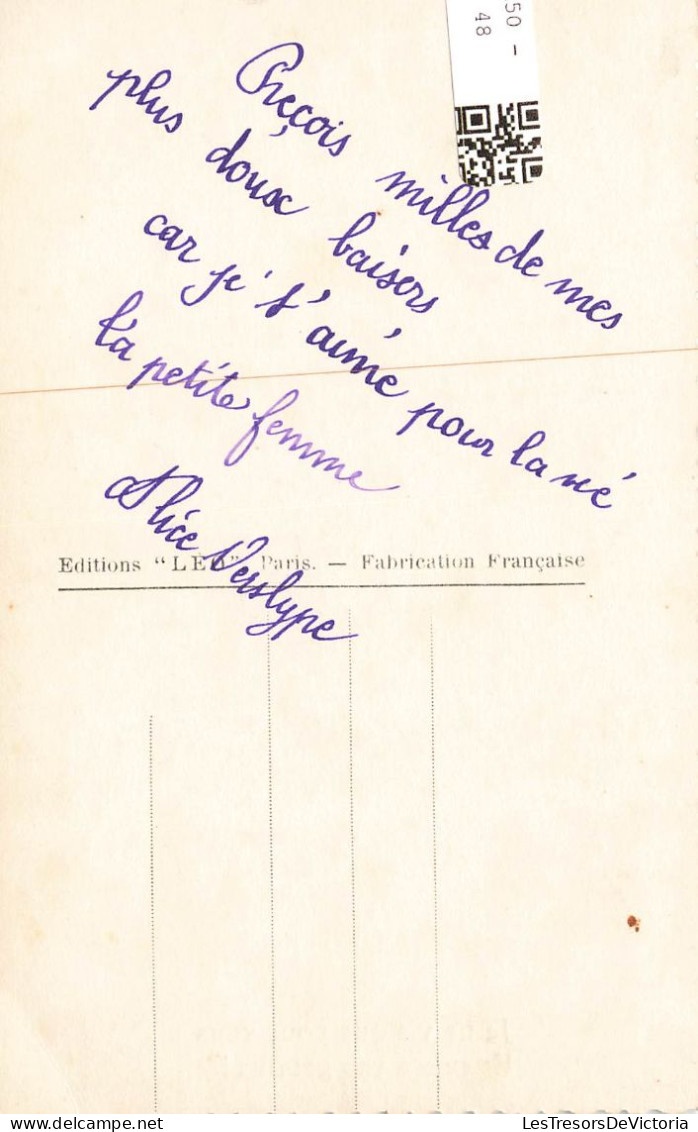 50 -
48
Reçois milles de mes
plus doux baisers
car je t'aime pour la vie
Ta petite femme
Alice Verslype
Editions "LÉO" Paris. — Fabrication Française
LesTresorsDeVictoria